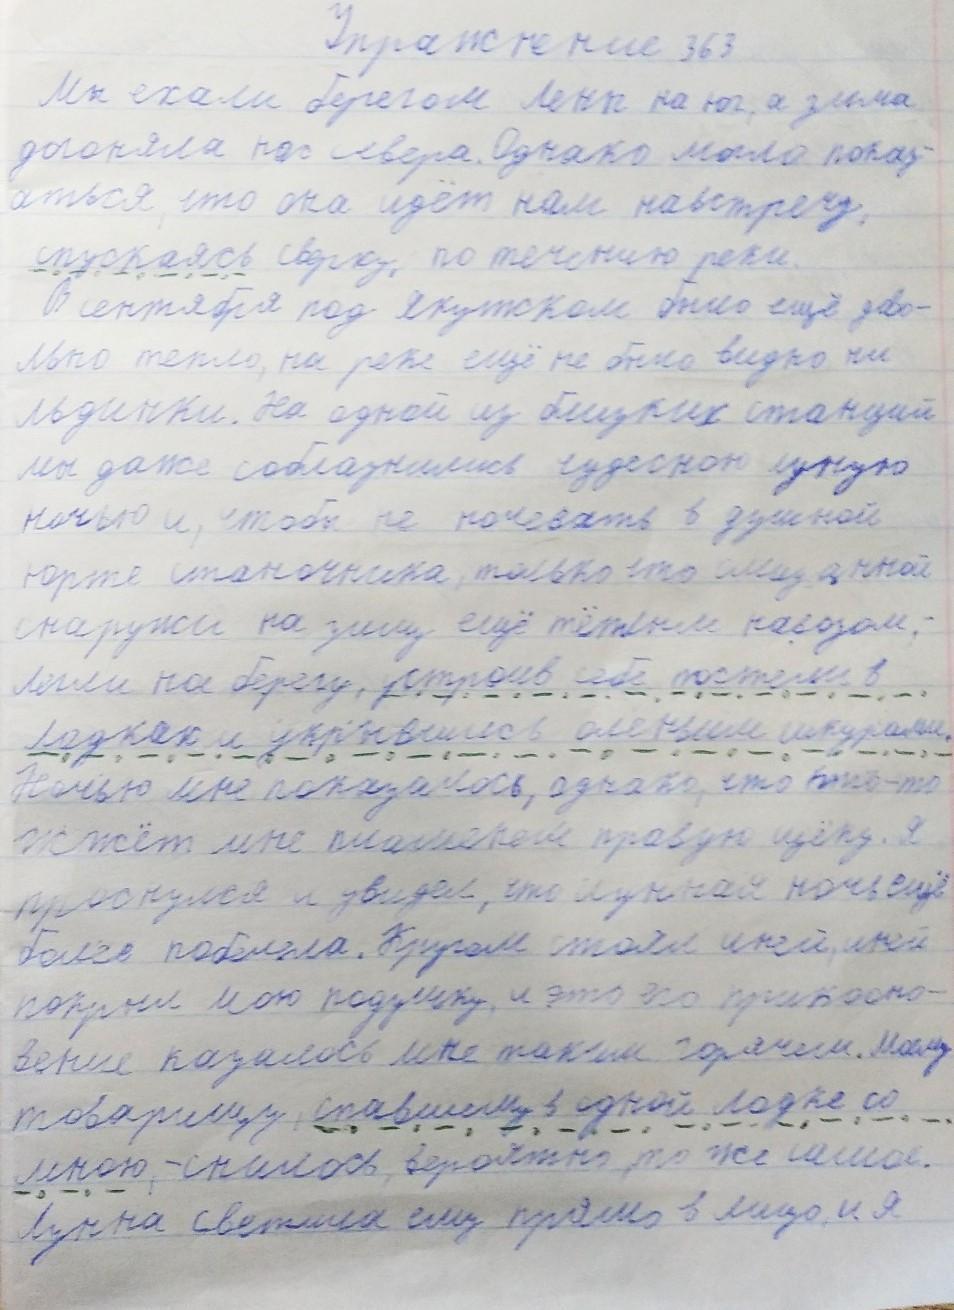 Упражнение 363
Мы ехали берегом Лены на юг, а зима
догоняла нас севера. Однако могло показ-
аться, что она идёт нам навстречу,
спускаясь сверху, по течению реки.
В сентября под Якутском было ещё дво-
льно тепло, на реке ещё не было видно ни
льдинки. На одной из близких станций
мы даже соблазнились чудесною луную
ночью и, чтобы не ночевать в душной
юрте станочника, только что смазанной
снаружи на зиму ещё тёплым навозом,-
легли на берегу, устроив себе постели в
лодках и укрывшись оленьим шкурами.
Ночью мне показалось, однако, что кто-то
жжёт мне пламенем правую щёку. Я
проснулся и увидел, что лунная ночь ещё
более побелела. Кругом стоял иней, иней
покрыл мою подушку, и это его прикосно-
вение казалось мне таким горячем. Моему
товарищу, спавшему в одной лодке со
мною,-снилось, вероятно, то же самое.
Лунна светила ему прямо в лицо, и я